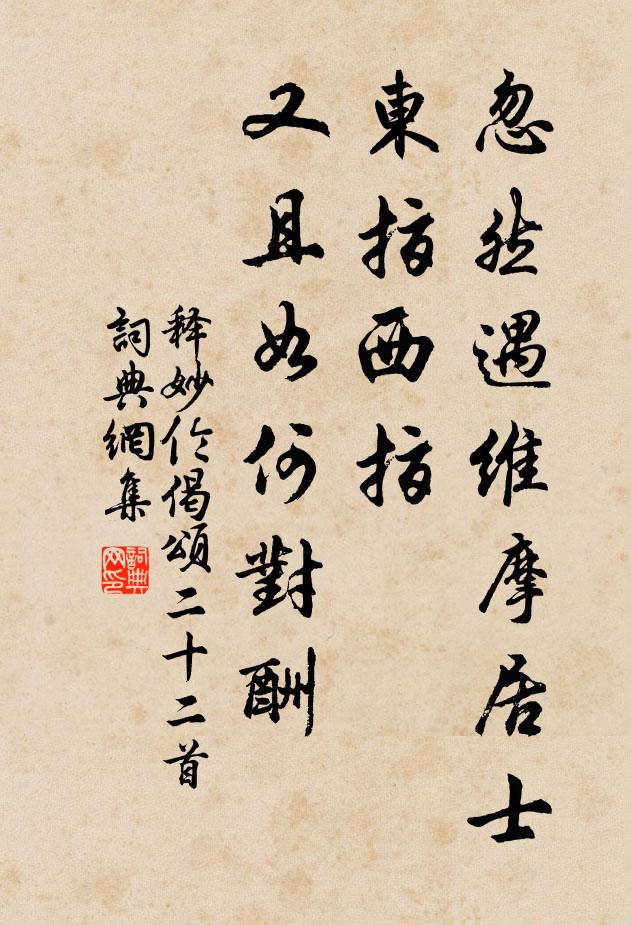 忽然遇維摩居士
東指西指
又且如何對酬
释妙伦偈頌二十二首
詞典網集
詞典网印